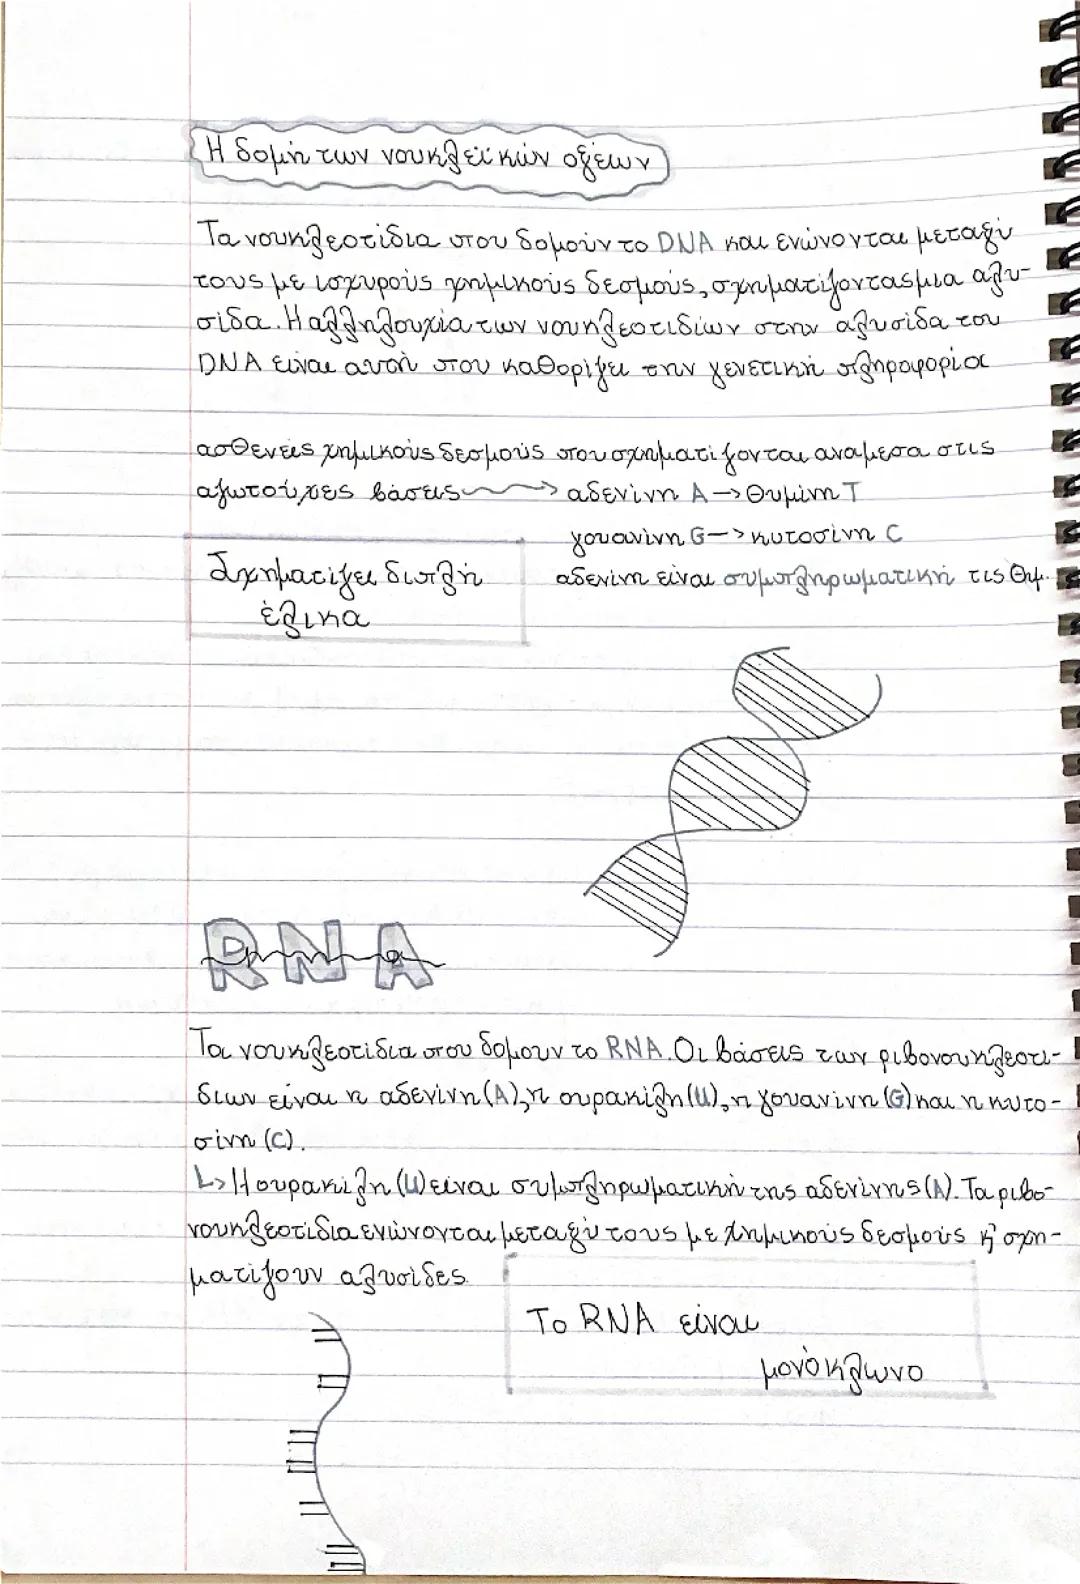 Η δομή των νουκλεϊκών οξέων
Τα νουκλεοτίδια που δομούν το DNA και ενώνονται μεταξύ
τους με ισχυρούς χημικούς δεσμούς, σχηματίζοντας μια αλυ-
σίδα. Η αλληλουχία των νουκλεοτιδίων στην αλυσίδα του
DNA είναι αυτή που καθορίζει την γενετική πληροφορία
ασθενείς χημικούς δεσμούς που σχηματίζονται αναμεσα στις
αζωτούχες βάσεις → αδενίνη A → Θυμίνη T
γουανίνη G -> κυτοσίνη C
Σχηματίζει διπλή
έλικα
αδενίνη είναι συμπληρωματική τις Θυμ.
RNA
Τα νουκλεοτίδια που δομουν το RNA. Οι βάσεις των ριβονουκλεοτι-
διων είναι η αδενίνη (A), η ουρακίλη (U), η γουανίνη (G) και η κυτο-
σίνη (C).
↳ Η ουρακίλη (U) είναι συμπληρωματική της αδενίνης (A). Τα ριβο-
νουκλεοτίδια ενώνονται μεταξύ τους με χημικούς δεσμούς κ' σχη-
ματίζουν αλυσίδες.
Το RNA είναι
μονόκλωνο